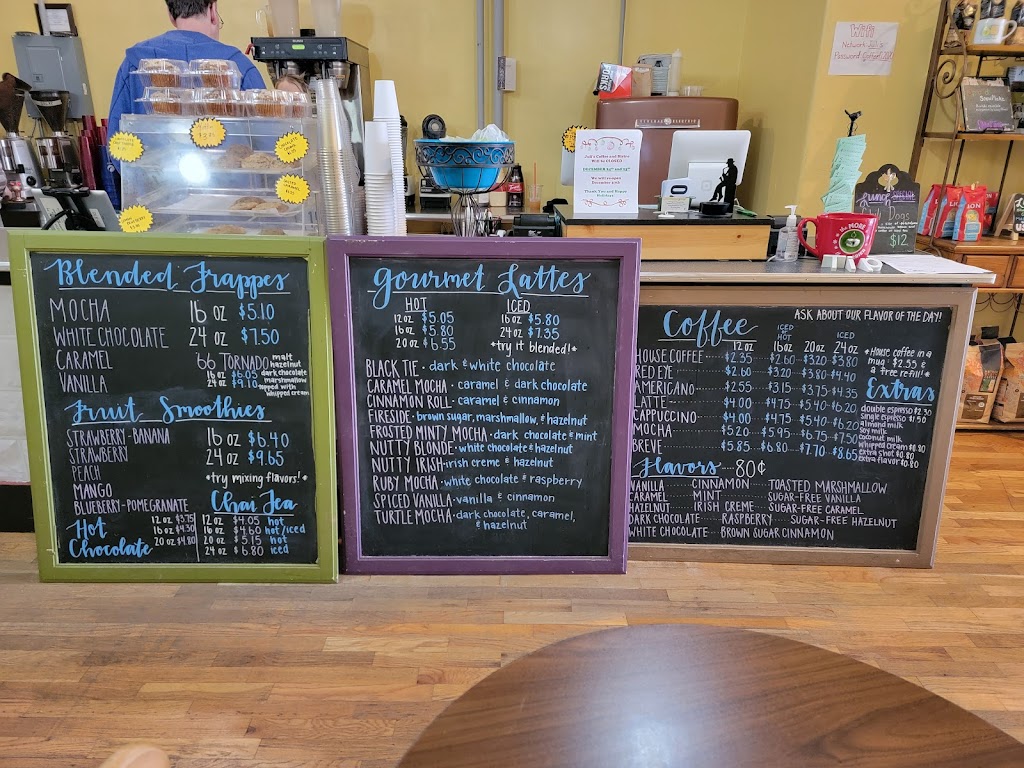 Wifi
Network
Password
Jak's Coffee and Bistro
Will be CLOSED
DECEMBER 24th and 25th
We will reopen
December 26th
Thank You and Happy
Holidays
Lunch Special
Dogs
$12
Blended Frappes
MOCHA 16 oz $5.10
WHITE CHOCOLATE 24 oz $7.50
CARAMEL
VANILLA
'66 TORNADO malt
hazelnut
dark chocolate
marshmallow
topped with
whipped cream
16 oz $6.05
24 oz $9.10
Fruit Smoothies
STRAWBERRY-BANANA 16 oz $6.40
STRAWBERRY 24 oz $9.65
PEACH
*try mixing flavors!*
MANGO
BLUEBERRY-POMEGRANATE
Hot Chocolate
12 oz $3.75
16 oz $4.30
20 oz $4.80
Chai Tea
12 oz $4.05 hot
16 oz $4.60 hot/iced
20 oz $5.15 hot
24 oz $6.80 iced
Gourmet Lattes
HOT
12 oz $5.05
16 oz $5.80
20 oz $6.55
ICED
16 oz $5.80
24 oz $7.35
*try it blended!*
BLACK TIE · dark & white chocolate
CARAMEL MOCHA · caramel & dark chocolate
CINNAMON ROLL · caramel & cinnamon
FIRESIDE · brown sugar, marshmallow, & hazelnut
FROSTED MINTY MOCHA · dark chocolate & mint
NUTTY BLONDE · white chocolate & hazelnut
NUTTY IRISH · irish creme & hazelnut
RUBY MOCHA · white chocolate & raspberry
SPICED VANILLA · vanilla & cinnamon
TURTLE MOCHA · dark chocolate, caramel,
& hazelnut
ASK ABOUT OUR FLAVOR OF THE DAY!
Coffee
12 oz ICED or HOT 16 oz 20 oz ICED 24 oz
HOUSE COFFEE $2.35 $2.60 $3.20 $3.80
RED EYE $2.60 $3.20 $3.80 $4.40
AMERICANO $2.55 $3.15 $3.75 $4.35
LATTE $4.00 $4.75 $5.40 $6.20
CAPPUCCINO $4.00 $4.75 $5.40 $6.20
MOCHA $5.20 $5.95 $6.75 $7.50
BREVE $5.85 $6.80 $7.70 $8.65
*House coffee in a
mug : $2.55 &
a free refill!*
Extras
double espresso $2.30
single espresso $1.50
almond milk
soy milk
coconut milk
whipped cream $0.80
extra shot $0.80
extra flavor $0.80
Flavors 80¢
VANILLA CINNAMON TOASTED MARSHMALLOW
CARAMEL MINT SUGAR-FREE VANILLA
HAZELNUT IRISH CREME SUGAR-FREE CARAMEL
DARK CHOCOLATE RASPBERRY SUGAR-FREE HAZELNUT
WHITE CHOCOLATE BROWN SUGAR CINNAMON